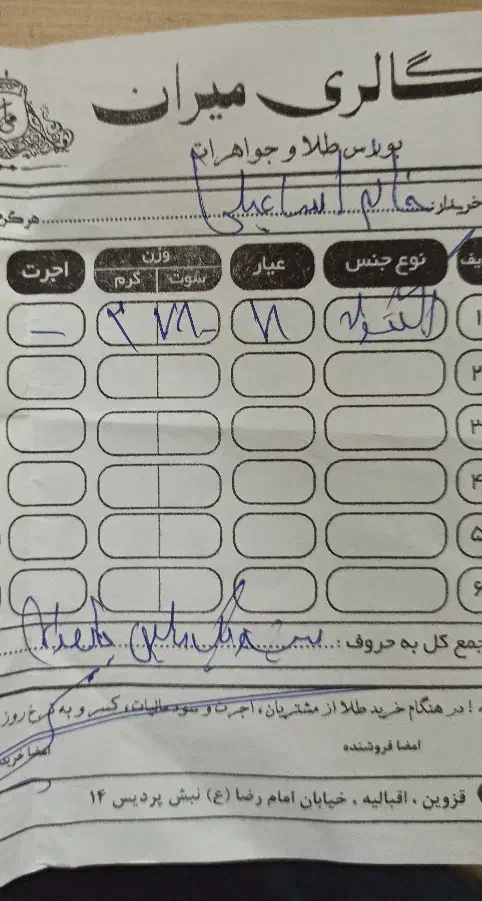 گالری میران
بورس طلا و جواهرات
خریدار: خانم اسماعیلی هرگرم
نوع جنس عیار وزن اجرت
سوت گرم
۱ النگو ۳ –
۲
۳
۴
۵
۶
جمع کل به حروف:
! در هنگام خرید طلا از مشتریان، اجرت و سود مالیات، کسر و به نرخ روز
امضا فروشنده امضا خریدار
قزوین، اقبالیه، خیابان امام رضا (ع) نبش پردیس ۱۴